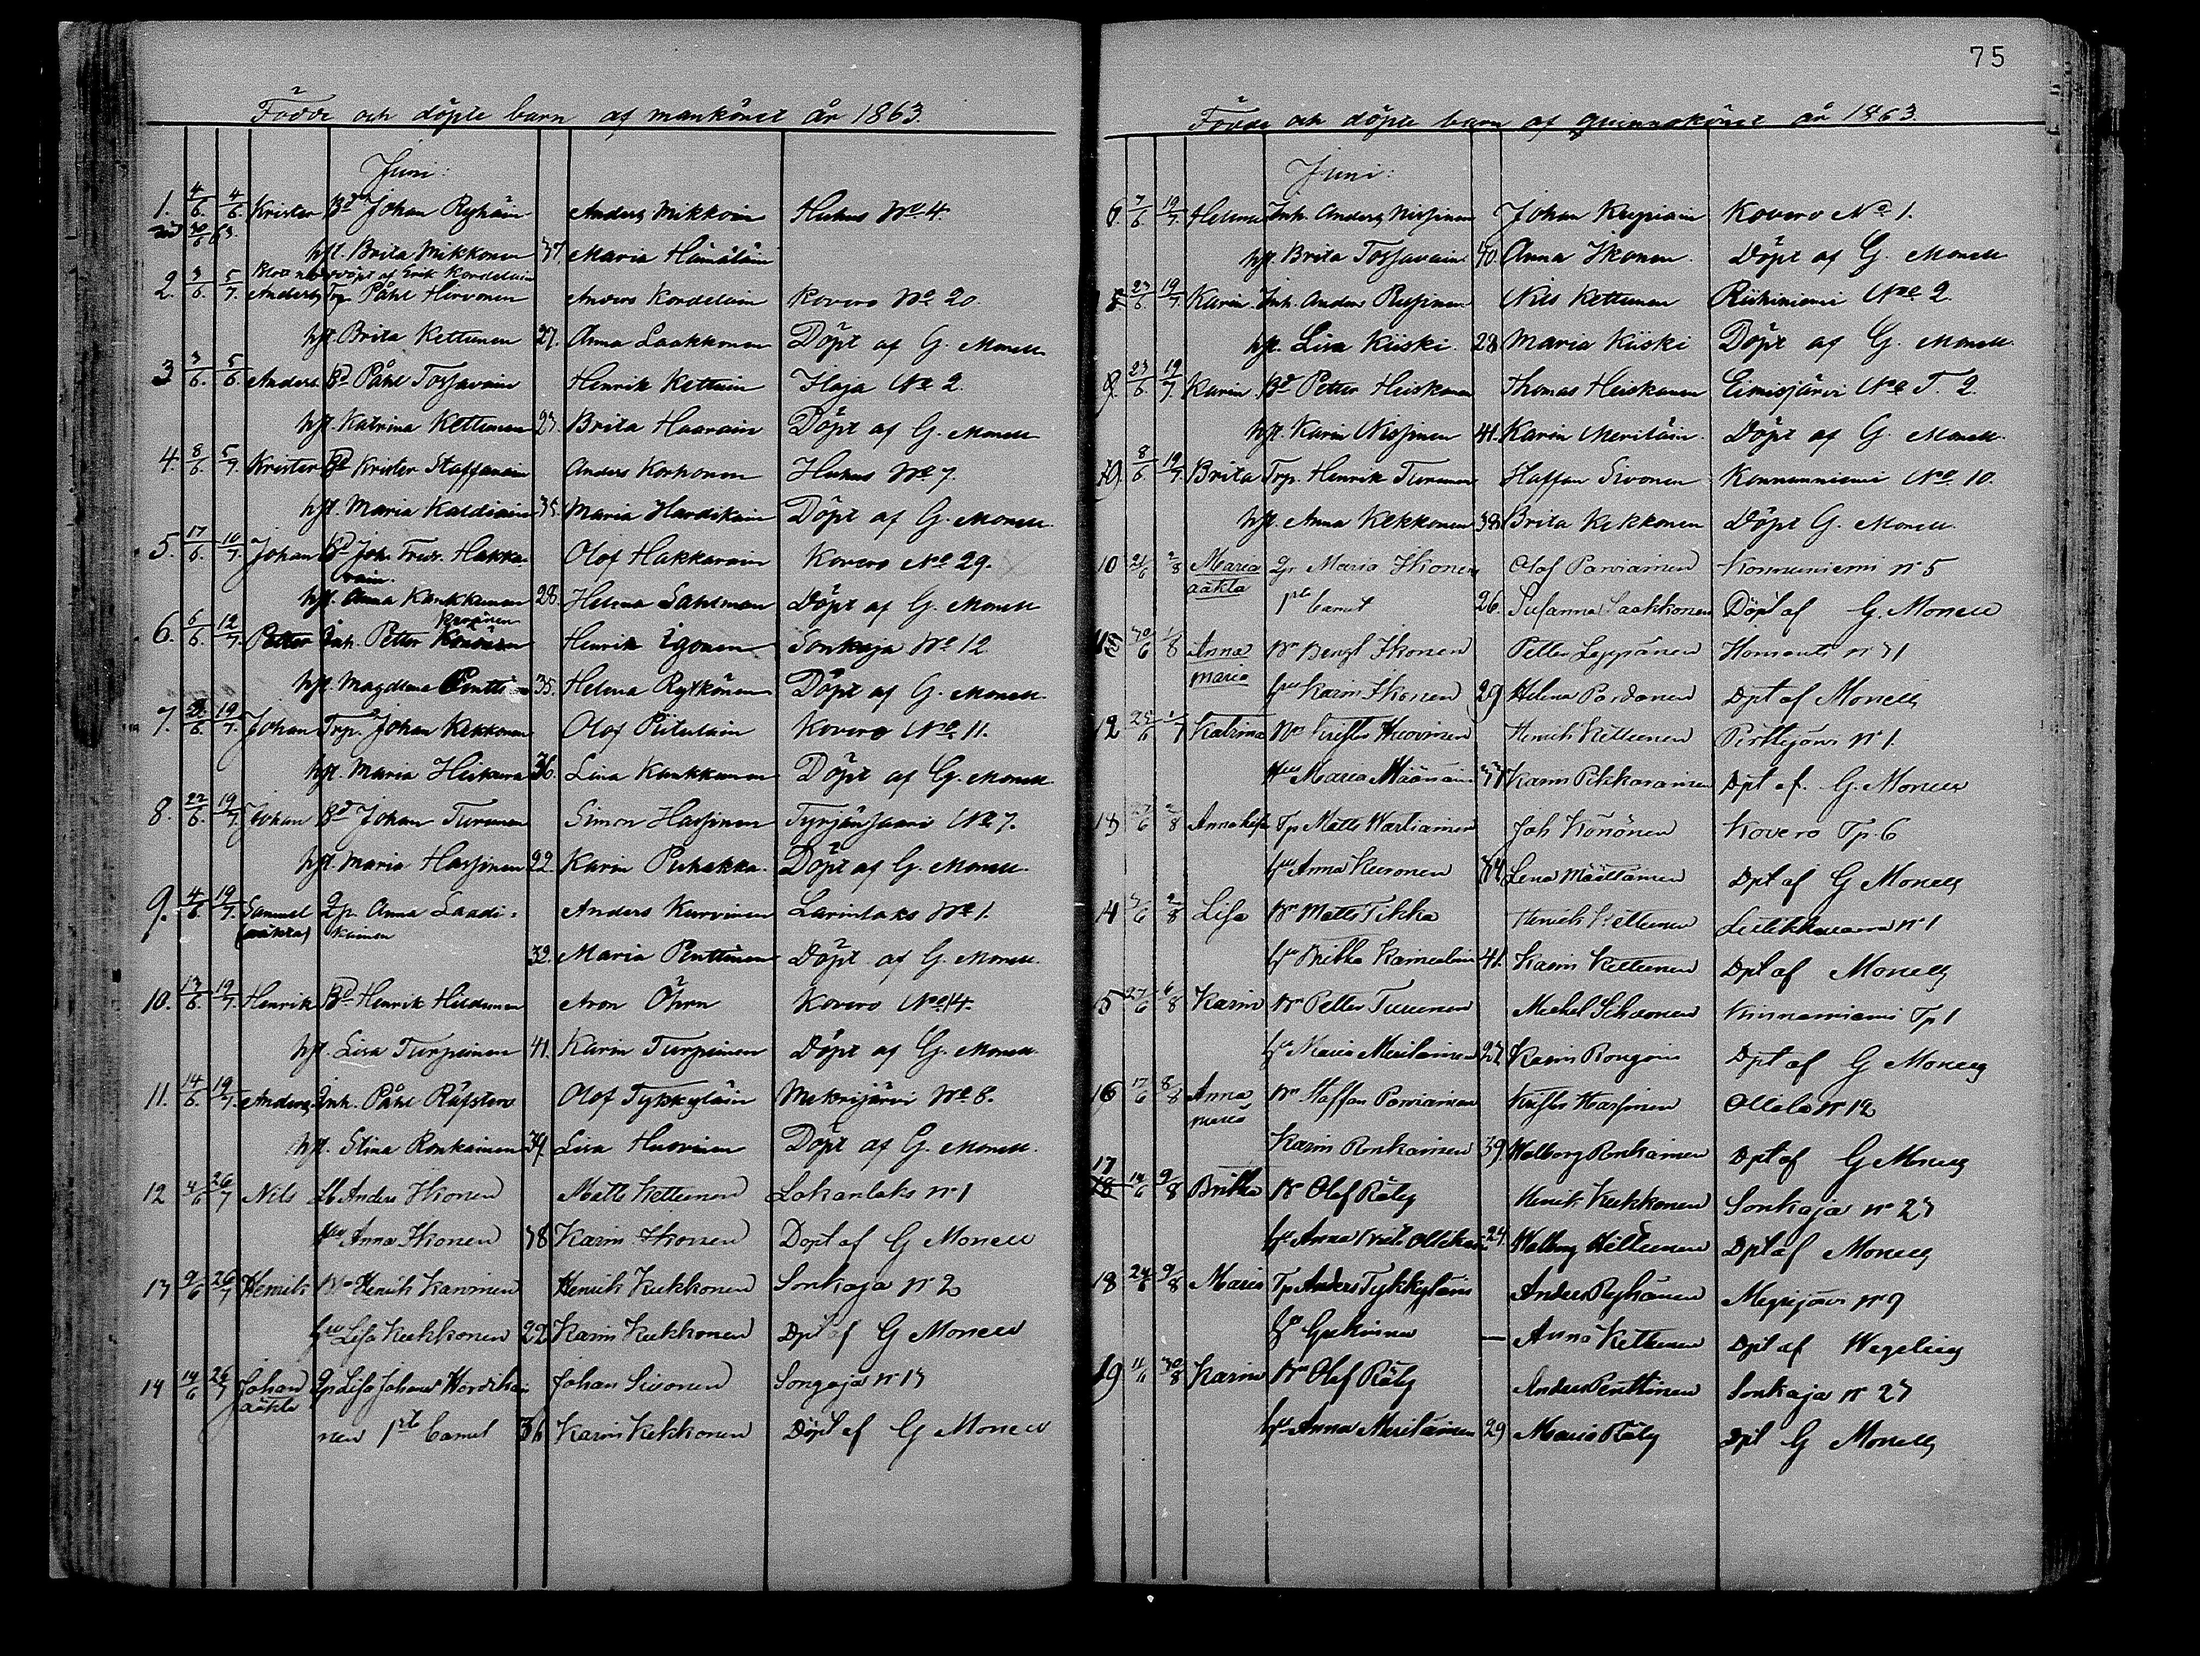 75
Födde och döpte barn af mankönet år 1863.
Juni:
1. 4/6. 4/6. Krister Bd Johan Ryhäin Anders Mikkoin Huhus No 4.
död 30/6 63.
hst. Brita Mikkonen 37. Maria Hämäläin
döpt af Erik Kondelain
2. 3/6. 5/7. Anders Trp. Påhl Hirvonen Anders Kondelain Kovero No 20.
hst. Brita Kettunen 27. Anna Laakkonen Döpt af G. Monell
3 3/6. 5/6. Anders Bd Påhl Tossavain Henrik Kettuin Ilaja No 2.
hst. Katrina Kettunen 23. Brita Haarain Döpt af G. Monell
4. 8/6. 5/7. Krister Bd Krister Staffanain Anders Korhonen Huhus No 7.
hst. Maria Kaldiain 35. Maria Hardikain Döpt af G. Monell
5. 17/6. 10/7. Johan Bd Joh. Hakka- Olof Hakkarain Kovero No 29.
rain.
hst. Anna Kankkunen 28. Helena Sahlman Döpt af G. Monell
6. 6/6. 12/7. Petter Inh. Petter Henrik Igonen Sonkaja No 12
hst. Magdlena Pentti 35. Helena Rytkönen Döpt af G. Monell.
7. 19/7. Johan Trp. Johan Kekkonen Olof Piitulain Kovero No 11.
hst. Maria 36. Lisa Kankkunen Döpt af G. Monell
8. 22/6. 19/7 Johan Bd Johan Turunen Simon Hassinen No 7.
hst. Maria Hassinen 22. Karin Puhakka. Döpt af G. Monell.
9. 4/6 19/7. Samuel Qp. Anna Laadi- Anders Kurvinen Larinlaks No 1.
(oäkta) kainen
32. Maria Penttinen Döpt af G. Monell.
10. 13/6 19/7. Henrik Bd Henrik Hildunen Aron Öhrn Kovero No 14.
hst. Lisa Turpeinen 41. Karin Turpeinen Döpt af G. Monell
11. 14/6. 19/7. Anders Inh. Påhl Räfsten Olof Tykkyläin Mekrijärvi No 8.
hst. Stina Ronkainen 39. Lisa Huovinen Döpt af G. Monell.
12 4/6 26/7 Nils Anders Ikonen Matts Kettunen Lokanlaks No 1
hu Anna Ikonen 38 Karin Ikonen Döpt af G Monell
13 9/6 26/7 Henrik Bn Henrik Karvinen Henrik Kukkonen Sonkaja No 2
hu Lisa Kukkonen 22 Karin Kukkonen Dpt af G Monell
14 14/6 26/7 Johan Qp Lisa Johans Hordikai Johan Sivonen Songaja No 13
oäkta
nen 1sta barnet 36 Karin Kekkonen Döpt af G Monell
Födde och döpte barn af quinnokönet år 1863.
Juni:
6. 7/6 19/7 Helena Inh. Anders Nissinen Johan Kupiain Kovero No 1.
hst. Brita Tossavain 40. Anna Ikonen. Döpt af G. Monell
23/6 19/7 Karin. Inh. Anders Nils Kettunen Riihiniemi No 2.
hst. Lisa Kiiski. 28 Maria Kiiski Döpt af G. Monell.
23/6 19/7. Karin Bd Petter Heiskanen Thomas Heiskanen Eimisjärvi No T. 2.
hst. Karin Nissinen 41. Karin Meriläin. Döpt af G. Monell.
8/6 19/7 Brita Trp. Henrik Turunen Staffan Sivonen Konnunniemi No 10.
hst. Anna Kekkonen 38 Brita Kekkonen Döpt G. Monell.
10 21/6 2/8 Maria Qp Maria Ikonen Olof Parviainen Konnuniemi No 5
oäkta 1sta barnet 26. Susanna Laakkonen Döpt af G. Monell
30/6 1/8 Anna Bn Bengt Ikonen Petter Leppänen Ilomants No 31
maria hu Karin Ikonen 29 Helena Pardanen Dpt af Monell
12 Katrina Bn Krister Huovinen Henrik Kettunen Perttijärvi No 1.
hu Maria Karin Pikkarainen Dpt af. G. Monell
13 27/6 2/8 Anna Lisa Tp Matts Joh Könönen Kovero Tp. 6
hu Anna Huronen 34 Lena Määttänen Dpt af G Monell
14 2/8 Lisa Bn Matts Tikka Henrik Kettunen No 1
41. Karin Kettunen Dpt af Monell
15 27/6 6/8 Karin Bn Petter Turunen Michel Sihvonen Kinnaniemi Tp 1
hu Maria Meriläinen 27 Karin Rongain Dpt af G Monell
16 17/6 8/8 Anna Bn Staffan Parviainen Krister Hassinen Ollola No 12
maria
Karin Ronkainen 39. Walborg Ronkainen Dpt af G Monell
17
18 14/6 9/8 Britha Bn Olof Räty Henrik Kukkonen Sonkaja No 23
hu Anna 24. Walborg Kettunen Dpt af Monell
18 24/6 9/8 Maria Tp Anders Tykkyläin Anders Ryhänen Megrijärvi No 9
— Anna Kettunen Dpt af Wegelius
19 11/6 30/8 Karin Bn Olof Räty Anders Penttinen Sonkaja No 23
hu Anna Meriläinen 29 Maria Räty Dpt G Monell